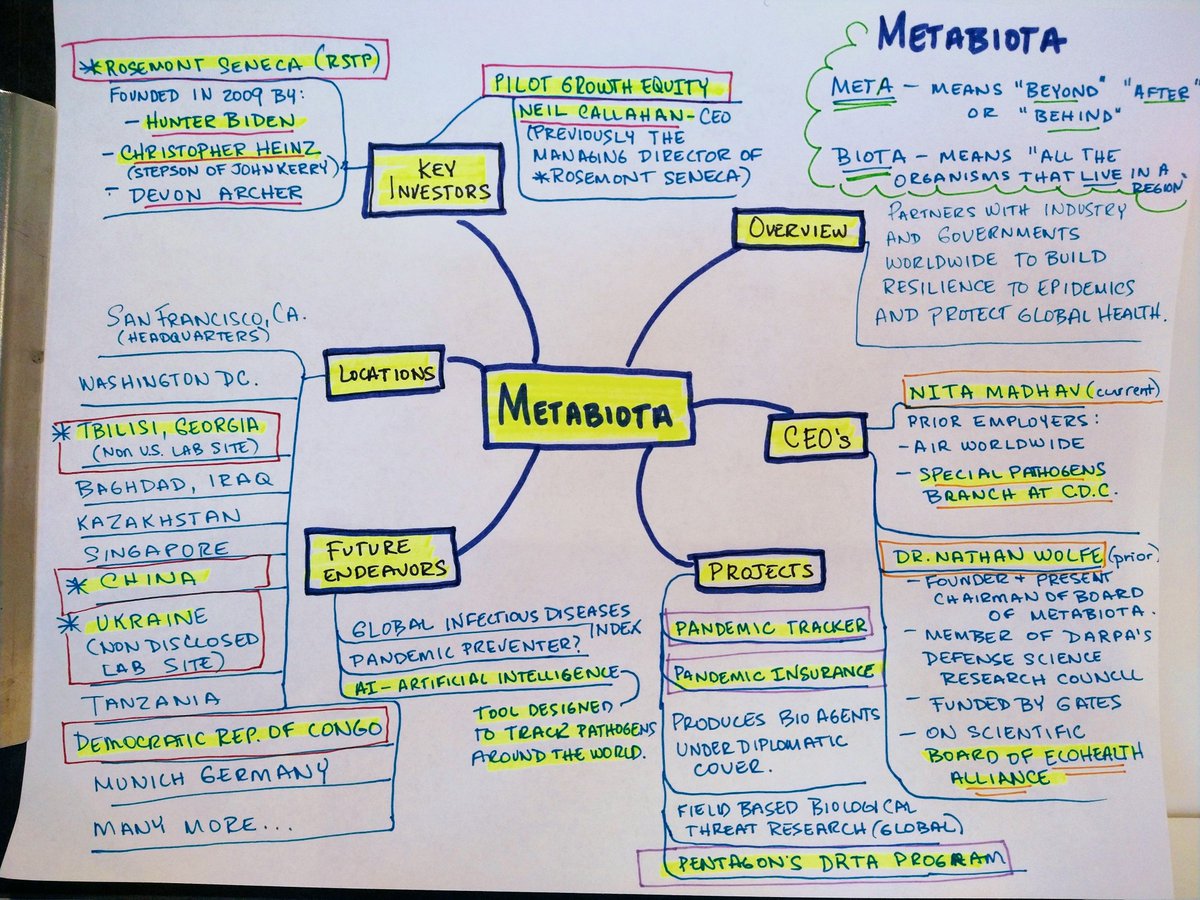 METABIOTA
META - MEANS "BEYOND" "AFTER"
OR "BEHIND"
BIOTA - MEANS "ALL THE
ORGANISMS THAT LIVE IN A
REGION"
*ROSEMONT SENECA (RSTP)
FOUNDED IN 2009 BY:
- HUNTER BIDEN
- CHRISTOPHER HEINZ
(STEPSON OF JOHN KERRY)
- DEVON ARCHER
PILOT GROWTH EQUITY
NEIL CALLAHAN - CEO
(PREVIOUSLY THE
MANAGING DIRECTOR OF
*ROSEMONT SENECA)
KEY
INVESTORS
OVERVIEW
PARTNERS WITH INDUSTRY
AND GOVERNMENTS
WORLDWIDE TO BUILD
RESILIENCE TO EPIDEMICS
AND PROTECT GLOBAL HEALTH.
SAN FRANCISCO, CA.
(HEADQUARTERS)
WASHINGTON DC.
* TBILISI, GEORGIA
(NON U.S. LAB SITE)
BAGHDAD, IRAQ
KAZAKHSTAN
SINGAPORE
* CHINA
* UKRAINE
(NON DISCLOSED
LAB SITE)
TANZANIA
DEMOCRATIC REP. OF CONGO
MUNICH GERMANY
MANY MORE...
LOCATIONS
METABIOTA
CEO's
NITA MADHAV (current)
PRIOR EMPLOYERS:
- AIR WORLDWIDE
- SPECIAL PATHOGENS
BRANCH AT C.D.C.
DR. NATHAN WOLFE (prior)
- FOUNDER + PRESENT
CHAIRMAN OF BOARD
OF METABIOTA.
- MEMBER OF DARPA'S
DEFENSE SCIENCE
RESEARCH COUNCIL
- FUNDED BY GATES
- ON SCIENTIFIC
BOARD OF ECOHEALTH
ALLIANCE
FUTURE
ENDEAVORS
GLOBAL INFECTIOUS DISEASES
INDEX
PANDEMIC PREVENTER?
AI - ARTIFICIAL INTELLIGENCE
TOOL DESIGNED
TO TRACK PATHOGENS
AROUND THE WORLD.
PROJECTS
PANDEMIC TRACKER
PANDEMIC INSURANCE
PRODUCES BIO AGENTS
UNDER DIPLOMATIC
COVER.
FIELD BASED BIOLOGICAL
THREAT RESEARCH (GLOBAL)
PENTAGON'S DRTA PROGRAM